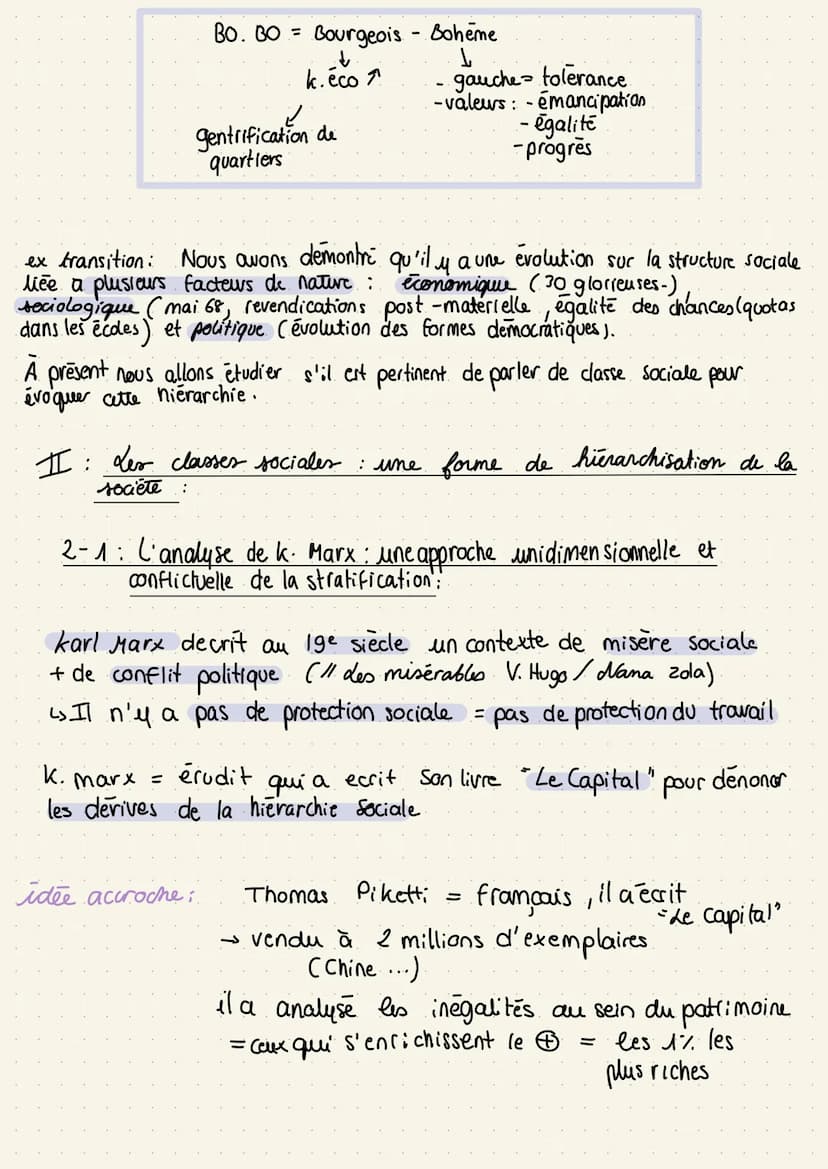 BO.BO = Bourgeois - Bohême
↓ ↓
k.éco ↗ - gauche = tolérance
-valeurs : - émancipation
- égalité
-progrès
gentrification de
quartiers
ex transition : Nous avons démontré qu'il y a une évolution sur la structure sociale
liée à plusieurs facteurs de nature : économique (30 glorieuses-),
sociologique (mai 68, revendications post-materielle, égalité des chances (quotas
dans les écoles) et politique (évolution des formes démocratiques).
À présent nous allons étudier s'il est pertinent de parler de classe sociale pour
évoquer cette hiérarchie.
II : Les classes sociales : une forme de hiérarchisation de la
société :
2-1 : L'analyse de k. Marx : une approche unidimensionnelle et
conflictuelle de la stratification :
karl Marx decrit au 19e siècle un contexte de misère sociale
+ de conflit politique (// des misérables V. Hugo / Nana Zola)
↳ Il n'y a pas de protection sociale = pas de protection du travail
K. marx = érudit qui a ecrit son livre "Le Capital" pour dénoncer
les dérives de la hiérarchie sociale
idée accroche : Thomas Piketti = français, il a écrit
"Le Capital"
→ vendu à 2 millions d'exemplaires
(Chine ...)
il a analysé les inégalités au sein du patrimoine
= ceux qui s'enrichissent le ⊕ = les 1% les
plus riches